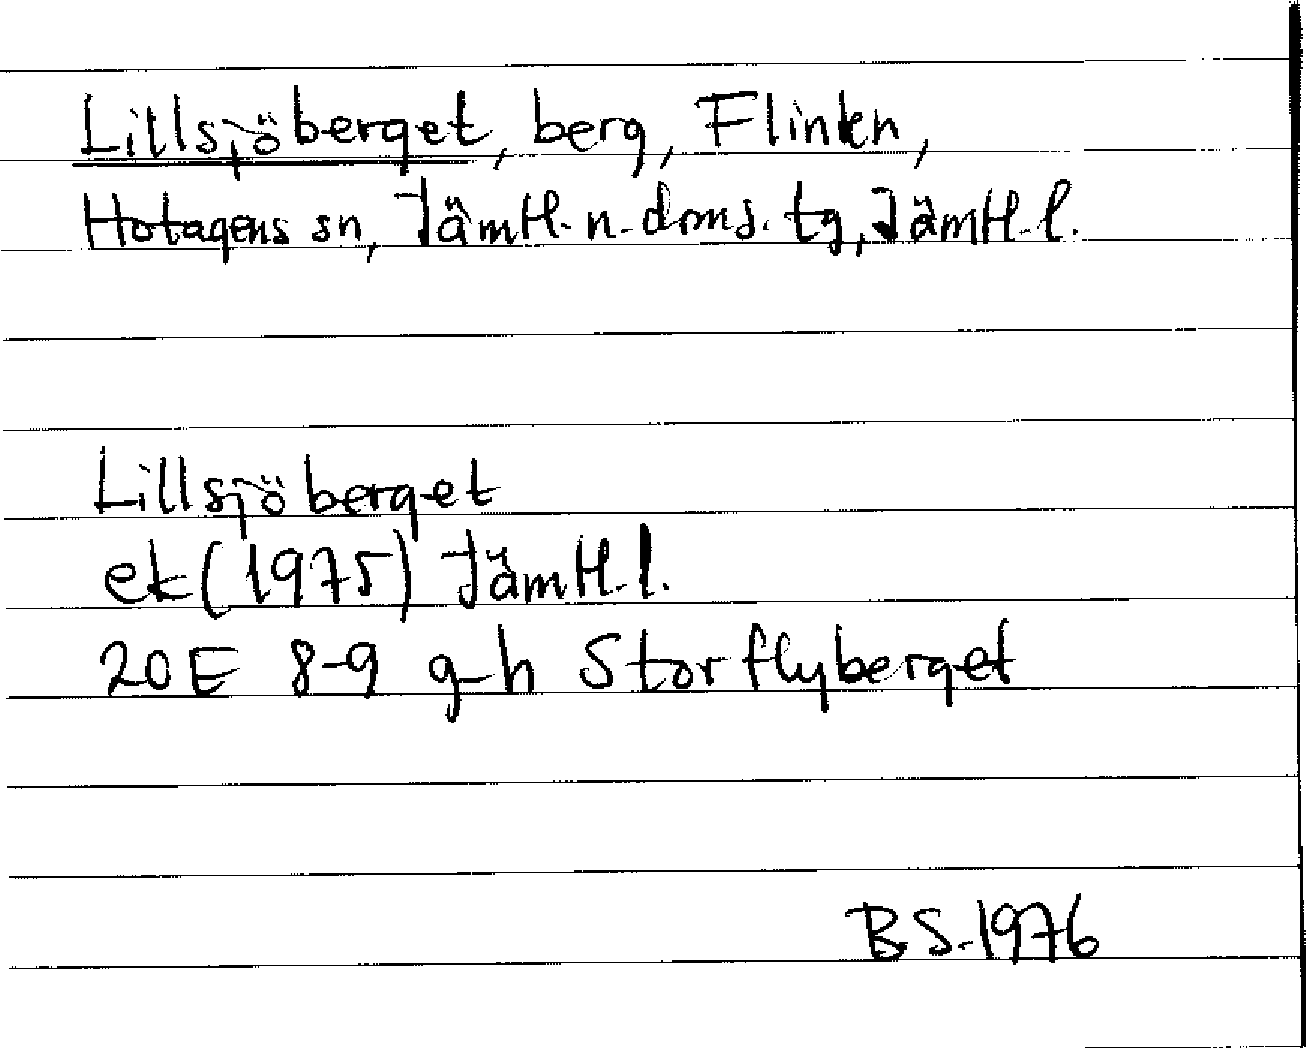 Lillsjöberget, berg, Flinken,
Hotagens sn, Jämtl. n. doms. tg, Jämtl. l.
Lillsjöberget
ek (1975) Jämtl. l.
20E 8-9 g-h Storflyberget
B.S. 1976